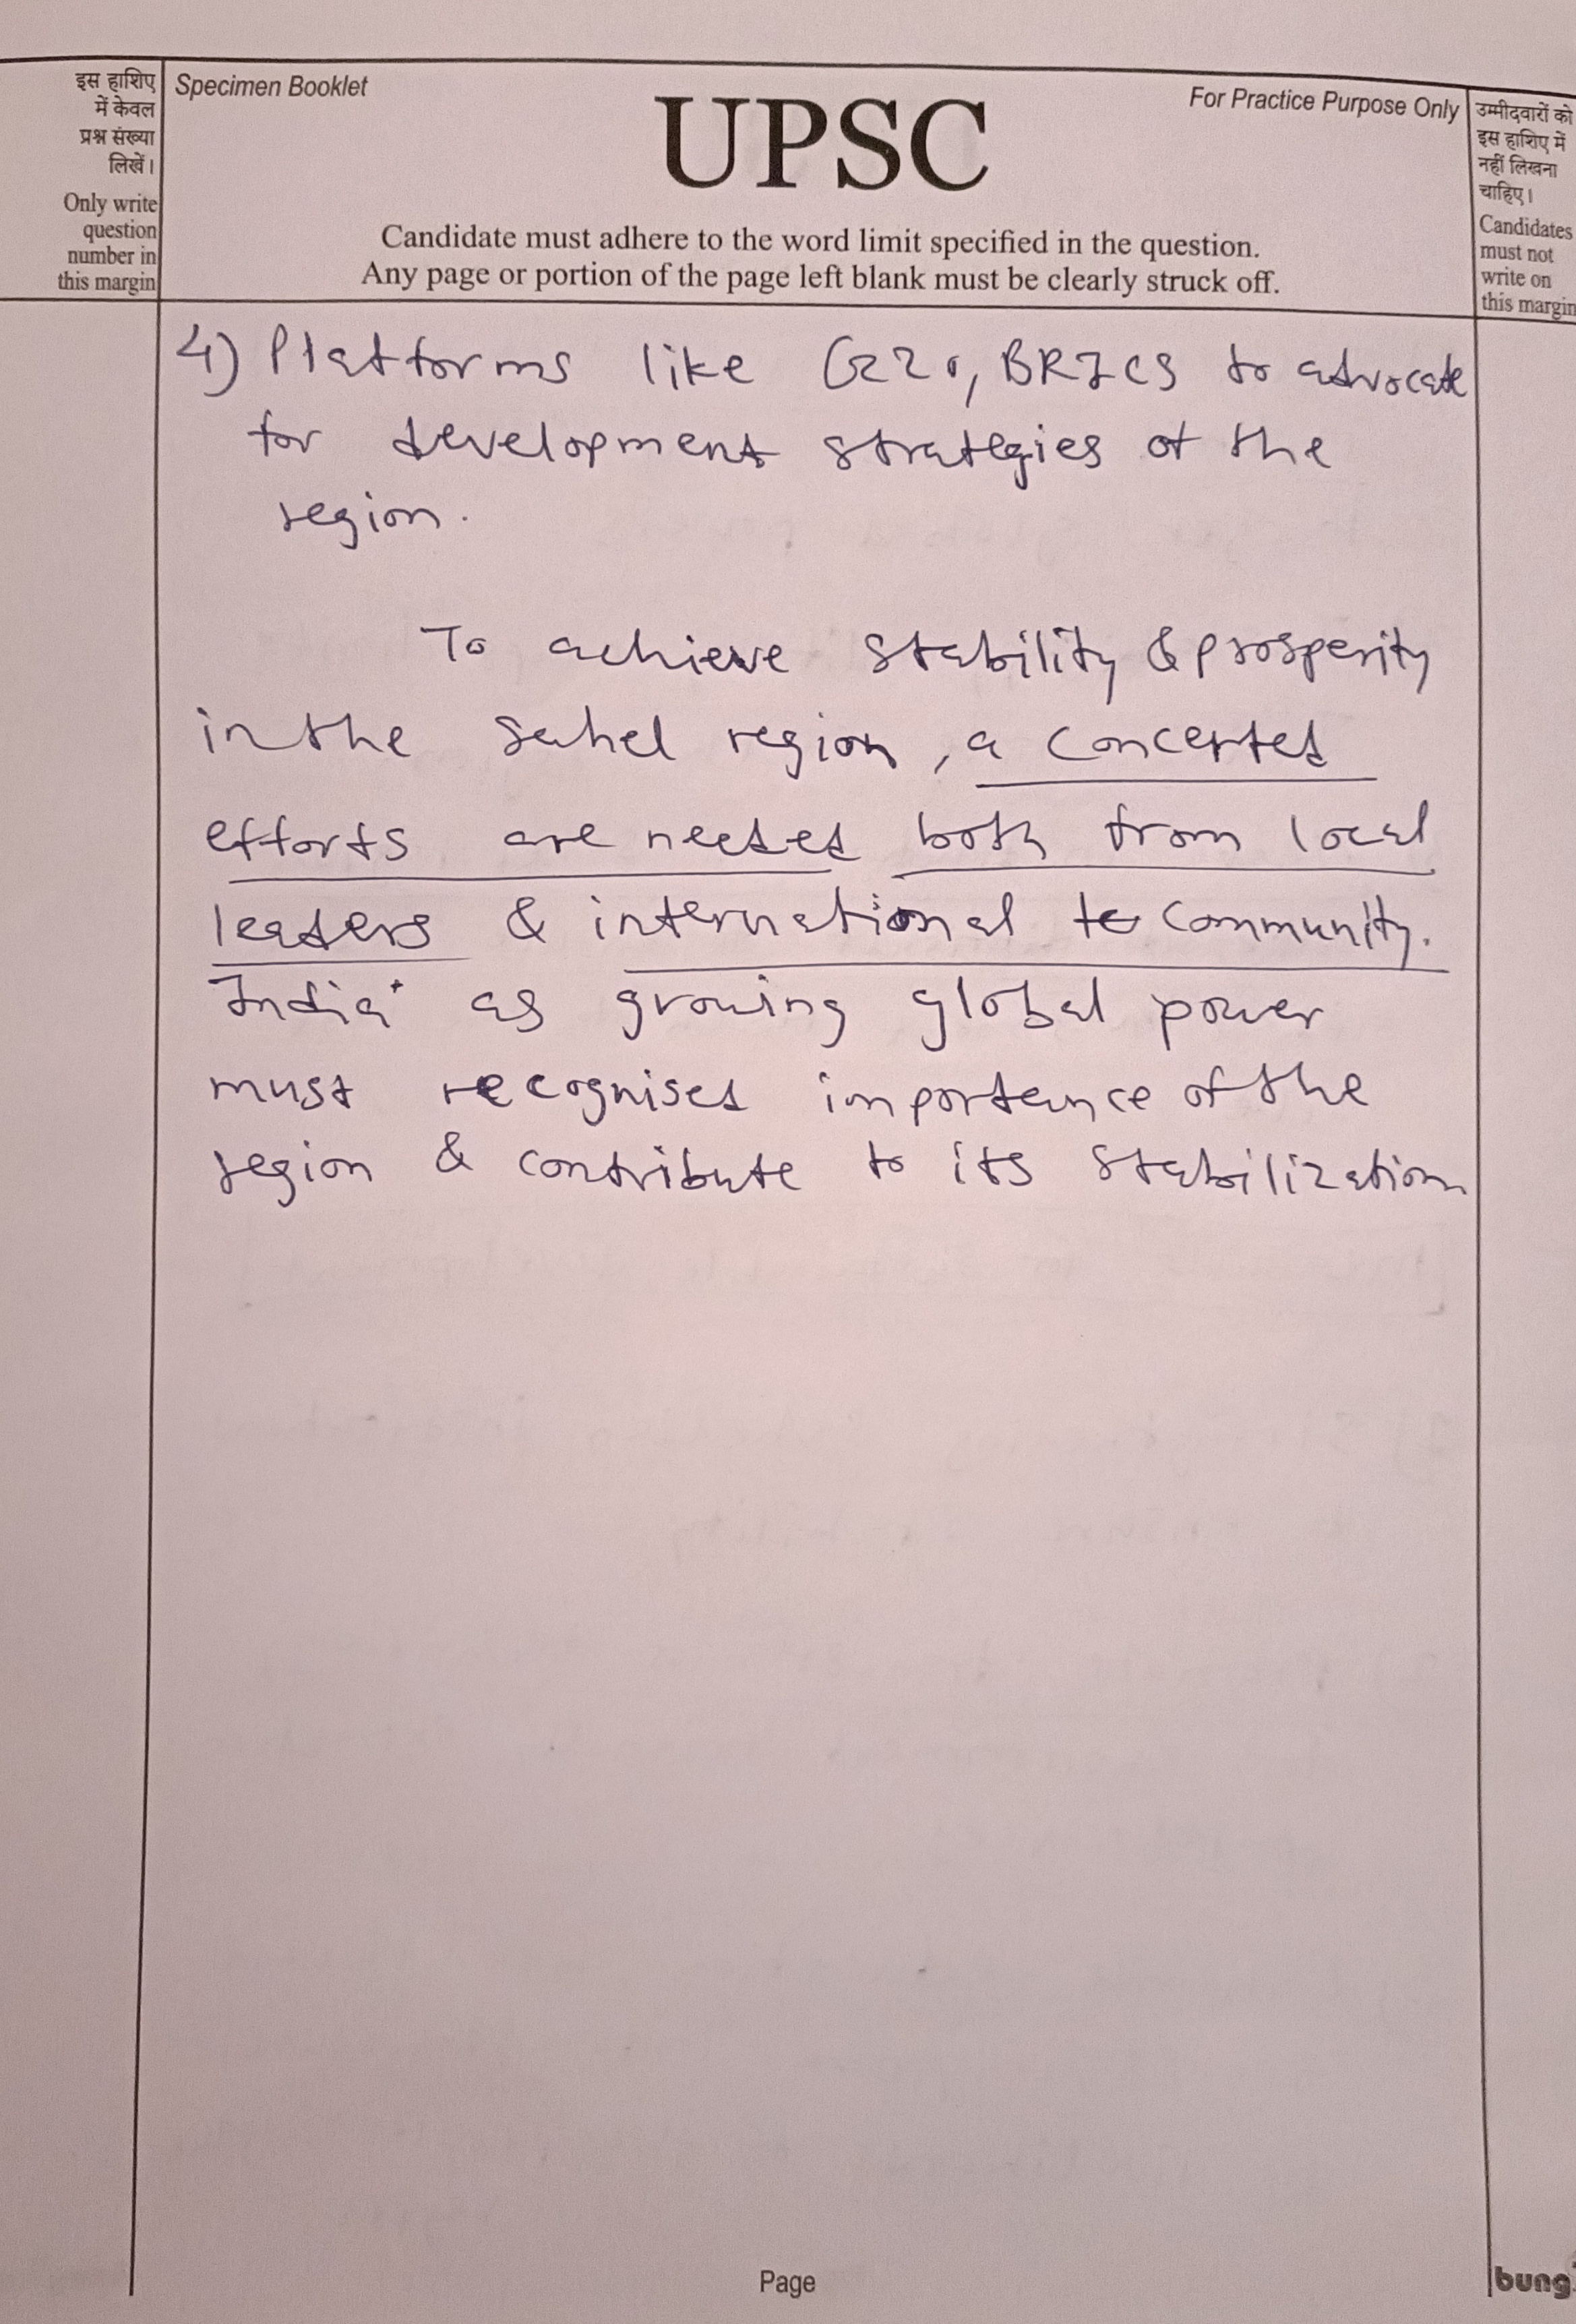 इस हाशिए
में केवल
प्रश्न संख्या
लिखें।
Only write
question
number in
this margin
Specimen Booklet
For Practice Purpose Only
UPSC
Candidate must adhere to the word limit specified in the question.
Any page or portion of the page left blank must be clearly struck off.
उम्मीदवारों को
इस हाशिए में
नहीं लिखना
चाहिए।
Candidates
must not
write on
this margin
4) Platforms like G20, BRICS to advocate
for development strategies of the
region.
To achieve stability & prosperity
in the sahel region, a concerted
efforts are needed both from local
leaders & international community.
India as growing global power
must recognised importance of the
region & contribute to its stabilization
Page
bung